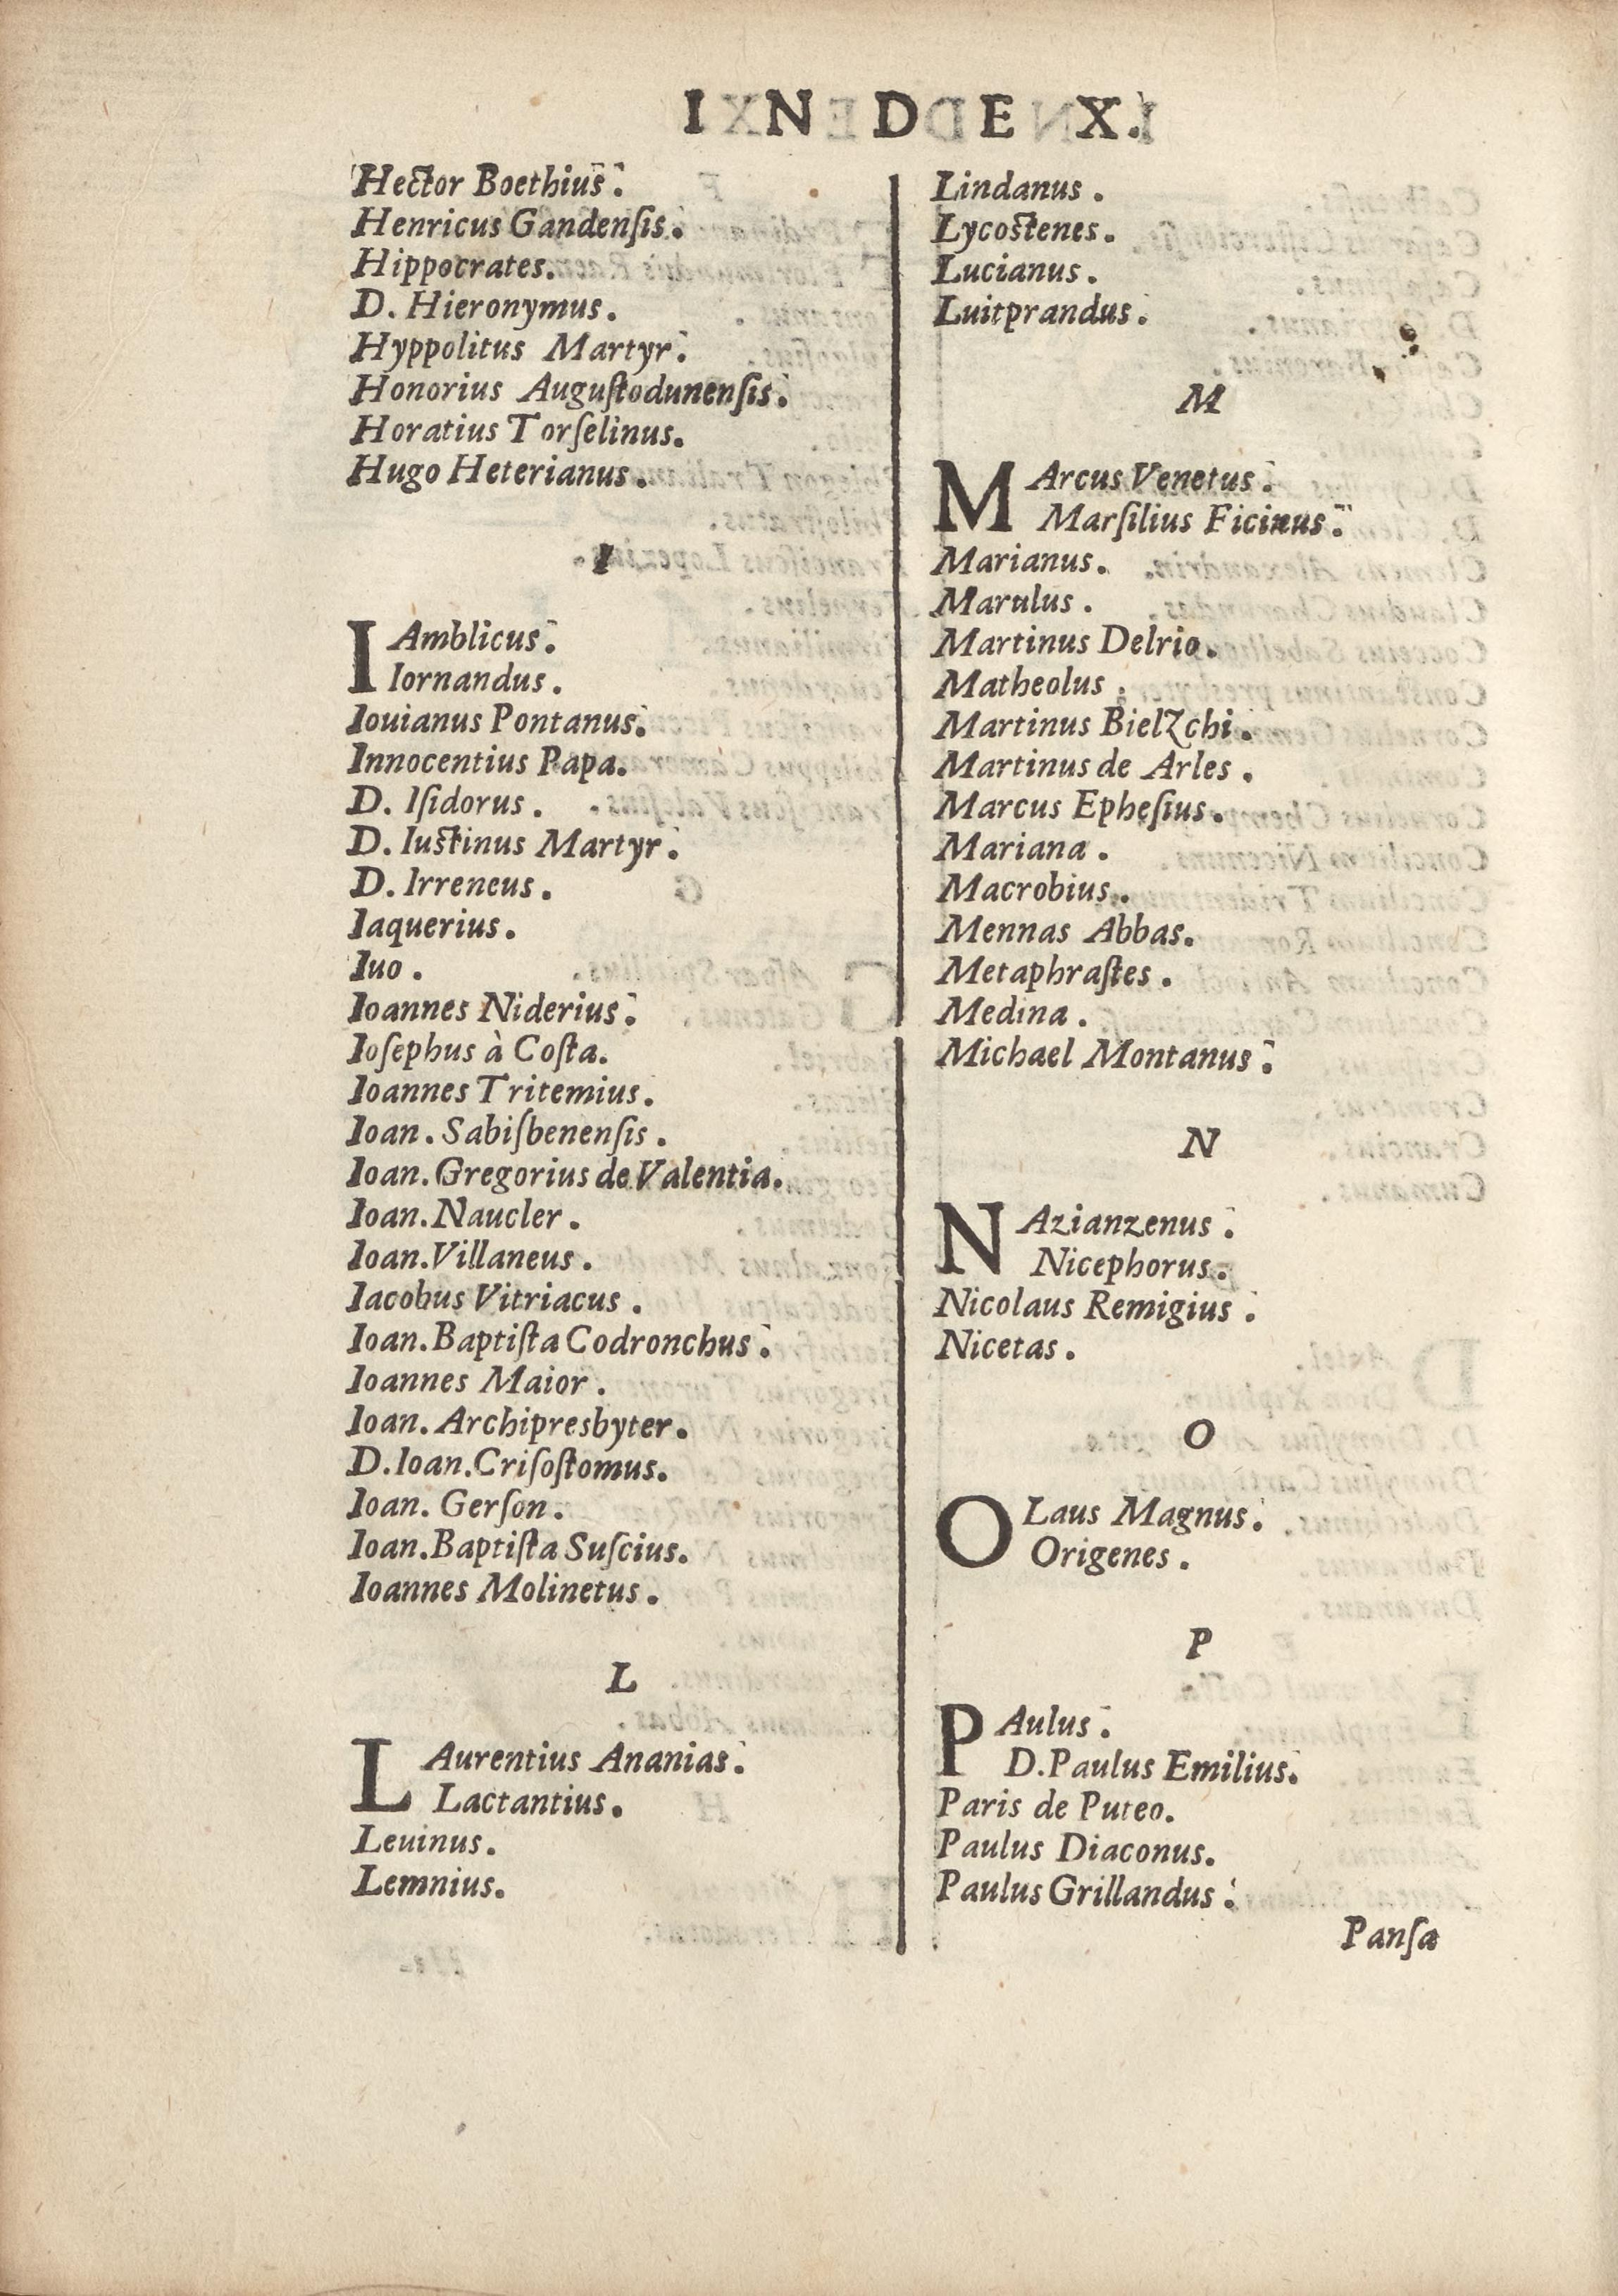 INDEX.
Hector Boethius.
Henricus Gandenſis.
Hippocrates.
D. Hieronymus.
Hyppolitus Martyr.
Honorius Auguſtodunenſis.
Horatius Torſelinus.
Hugo Heterianus.
I
IAmblicus.
Iornandus.
Iouianus Pontanus.
Innocentius Papa.
D. Iſidorus.
D. Iustinus Martyr.
D. Irreneus.
Iaquerius.
Iuo.
Ioannes Niderius.
Ioſephus à Coſta.
Ioannes Tritemius.
Ioan. Sabiſbenenſis.
Ioan. Gregorius de Valentia.
Ioan. Naucler.
Ioan. Villaneus.
Iacobus Vitriacus.
Ioan. Baptiſta Codronchus.
Ioannes Maior.
Ioan. Archipresbyter.
D. Ioan. Criſoſtomus.
Ioan. Gerſon.
Ioan. Baptiſta Suſcius.
Ioannes Molinetus.
L
LAurentius Ananias.
Lactantius.
Leuinus.
Lemnius.
Lindanus.
Lycostenes.
Lucianus.
Luitprandus.
M
MArcus Venetus.
Marſilius Ficinus.
Marianus.
Marulus.
Martinus Delrio.
Matheolus.
Martinus Bielzchi.
Martinus de Arles.
Marcus Epheſius.
Mariana.
Macrobius.
Mennas Abbas.
Metaphraſtes.
Medina.
Michael Montanus.
N
NAzianzenus.
Nicephorus.
Nicolaus Remigius.
Nicetas.
O
OLaus Magnus.
Origenes.
P
PAulus.
D. Paulus Emilius.
Paris de Puteo.
Paulus Diaconus.
Paulus Grillandus.
Panſa